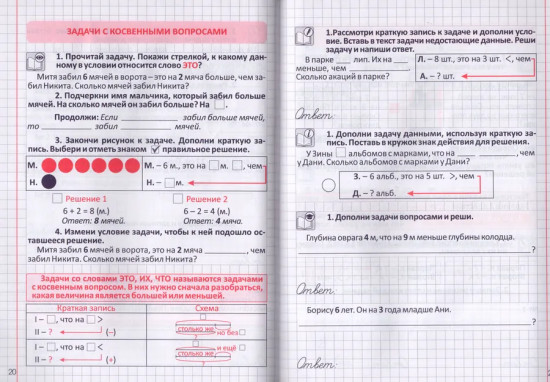 ЗАДАЧИ С КОСВЕННЫМИ ВОПРОСАМИ
1. Прочитай задачу. Покажи стрелкой, к какому дан-
ному в условии относится слово ЭТО?
Митя забил 6 мячей в ворота – это на 2 мяча больше, чем за-
бил Никита. Сколько мячей забил Никита?
2. Подчеркни имя мальчика, который забил больше
мячей. На сколько мячей он забил больше? На
Продолжи: Если забил больше мячей,
то забил мячей.
3. Закончи рисунок к задаче. Дополни краткую за-
пись. Выбери и отметь знаком правильное решение.
М.
М. – 6 м., это на м. , чем
Н.
Н. – м.
Решение 1
Решение 2
6 + 2 = 8 (м.)
6 – 2 = 4 (м.)
Ответ: 8 мячей.
Ответ: 4 мяча.
4. Измени условие задачи, чтобы к ней подошло ос-
тавшееся решение.
Митя забил 6 мячей в ворота, это на 2 мяча , чем
забил Никита. Сколько мячей забил Никита?
Задачи со словами ЭТО, ИХ, ЧТО называются задачами
с косвенным вопросом. В них нужно сначала разобрать,
какая величина является большей или меньшей.
Краткая запись
Схема
I – , что на >
II – ? (–)
столько же, но без
?
I – , что на <
II – ? (+)
столько же, и ещё
?
20
1. Рассмотри краткую запись к задаче и дополни усло-
вие. Вставь в текст задачи недостающие данные. Реши
задачу и напиши ответ.
В парке лип. Их на
меньше, чем .
Сколько акаций в парке?
Л. – 8 шт., это на 3 шт. <, чем
А. – ? шт.
Ответ:
1. Дополни задачу данными, используя краткую за-
пись. Поставь в кружок знак действия для решения.
У Зины альбомов с марками, что на , чем
у Дани. Сколько альбомов с марками у Дани?
З. – 6 альб., это на 5 шт. >, чем
Д. – ? альб.
1. Дополни задачи вопросами и реши.
Глубина оврага 4 м, что на 9 м меньше глубины колодца.
?
Ответ:
Борису 6 лет. Он на 3 года младше Ани.
?
Ответ: